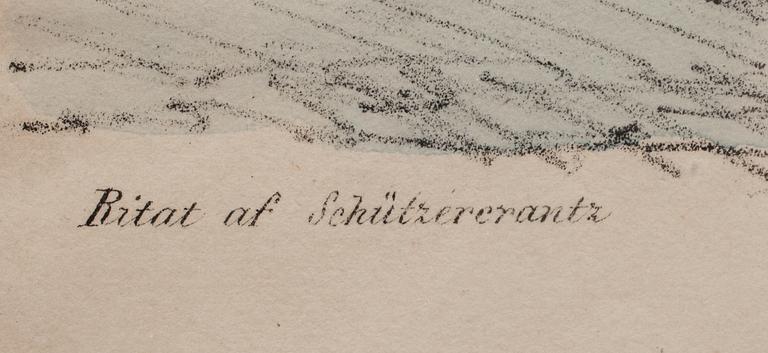 Ritat af Schützércrantz